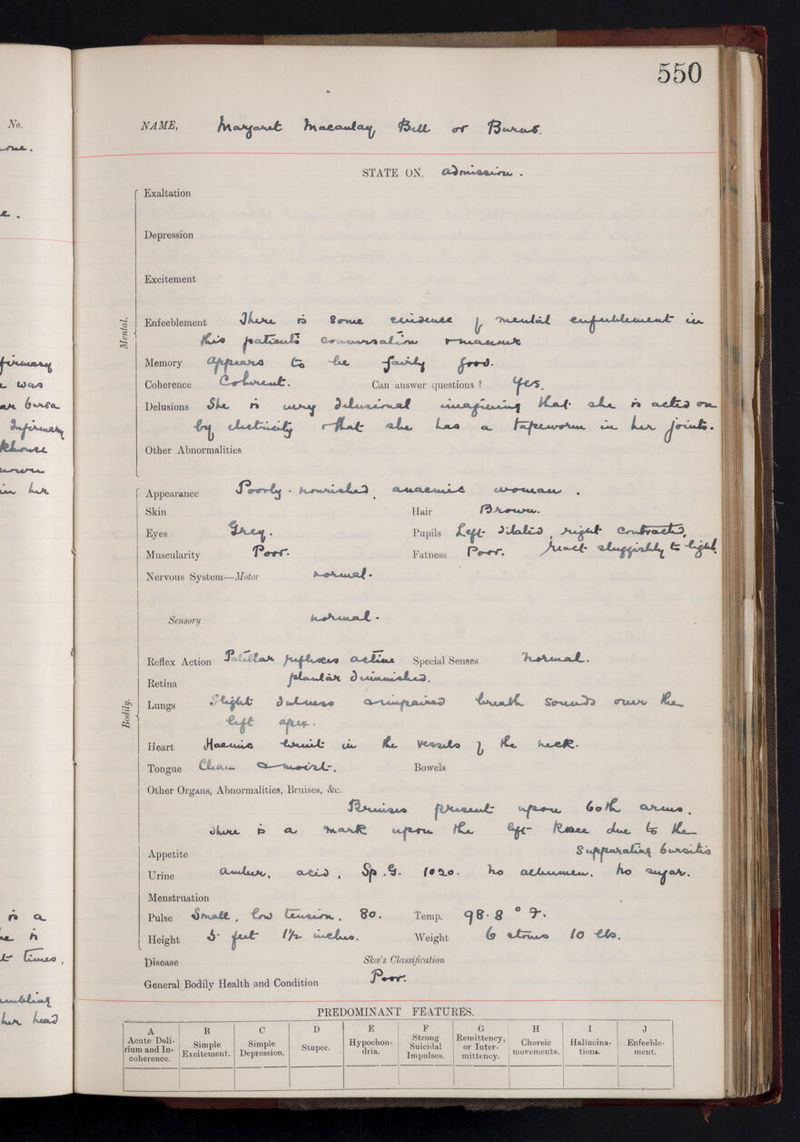 550
No.
NAME, Margaret Macaulay, Bell or Burns.
STATE ON. admission.
Mental.
Exaltation
Depression
Excitement
Enfeeblement There is some evidence of mental enfeeblement in
this patients conversation & manner
Memory appears to be fairly good.
Coherence Coherent. Can answer questions? Yes.
Delusions She is very delusional imagining that she is acted on
by electricity & that she has a tapeworm in her joints.
Other Abnormalities
Bodily.
Appearance Poorly nourished, anaemic woman.
Skin Hair Brown.
Eyes Grey. Pupils Left dilated, right contracted,
Muscularity Poor. Fatness Poor. react sluggishly to light
Nervous System—Motor normal.
Sensory normal.
Reflex Action Patellar reflexes active Special Senses Normal.
Retina plantar diminished.
Lungs Slight dulness & impaired breath sounds over the
left apex.
Heart Haemic bruit in the vessels of the neck.
Tongue Clean & moist. Bowels
Other Organs, Abnormalities, Bruises, &c.
Bruises present upon both arms.
There is a mark upon the left knee due to the
Appetite suppurating bursitis
Urine amber, acid, Sp.G. 1020. no albumen, no sugar.
Menstruation
Pulse Small, low tension, 80. Temp. 98.8 ° F.
Height 5 feet 1½ inches. Weight 6 stones 10 lbs.
Disease Skæ's Classification
General Bodily Health and Condition Poor.
PREDOMINANT FEATURES.
A B C D E F G H I J
Acute Delirium and Incoherence. Simple Excitement. Simple Depression. Stupor. Hypochondria. Strong Suicidal Impulses. Remittency, or Intermittency. Choreic movements. Hallucinations. Enfeeblement.